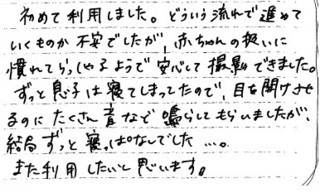 初めて利用しました。どういう流れで進めて
いくものか不安でしたが、赤ちゃんの扱いに
慣れてらっしゃるようで安心して撮影できました。
ずっと息子は寝てしまってたので、目を開けさせ
るのにたくさん音など鳴らしてもらいましたが、
結局ずっと寝っぱなしでした…。
また利用したいと思います。